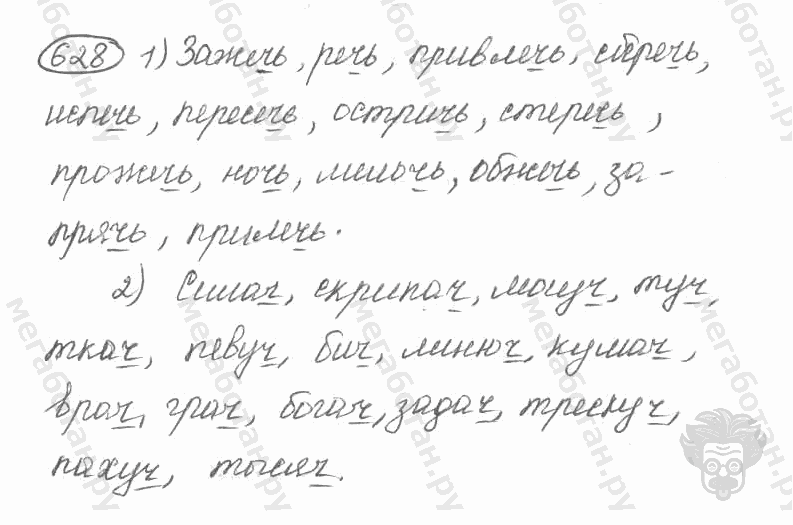 628 1) Зажечь, речь, привлечь, сбречь,
испечь, пересечь, остричь, стеречь,
прожечь, ночь, мелочь, обжечь, за-
прячь, прилечь.
2) Силач, скрипач, могуч, туч,
ткач, певуч, бич, линюч, кумач,
врач, грач, богач, задач, трескуч,
пахуч, тысяч.
мегаботан.ру